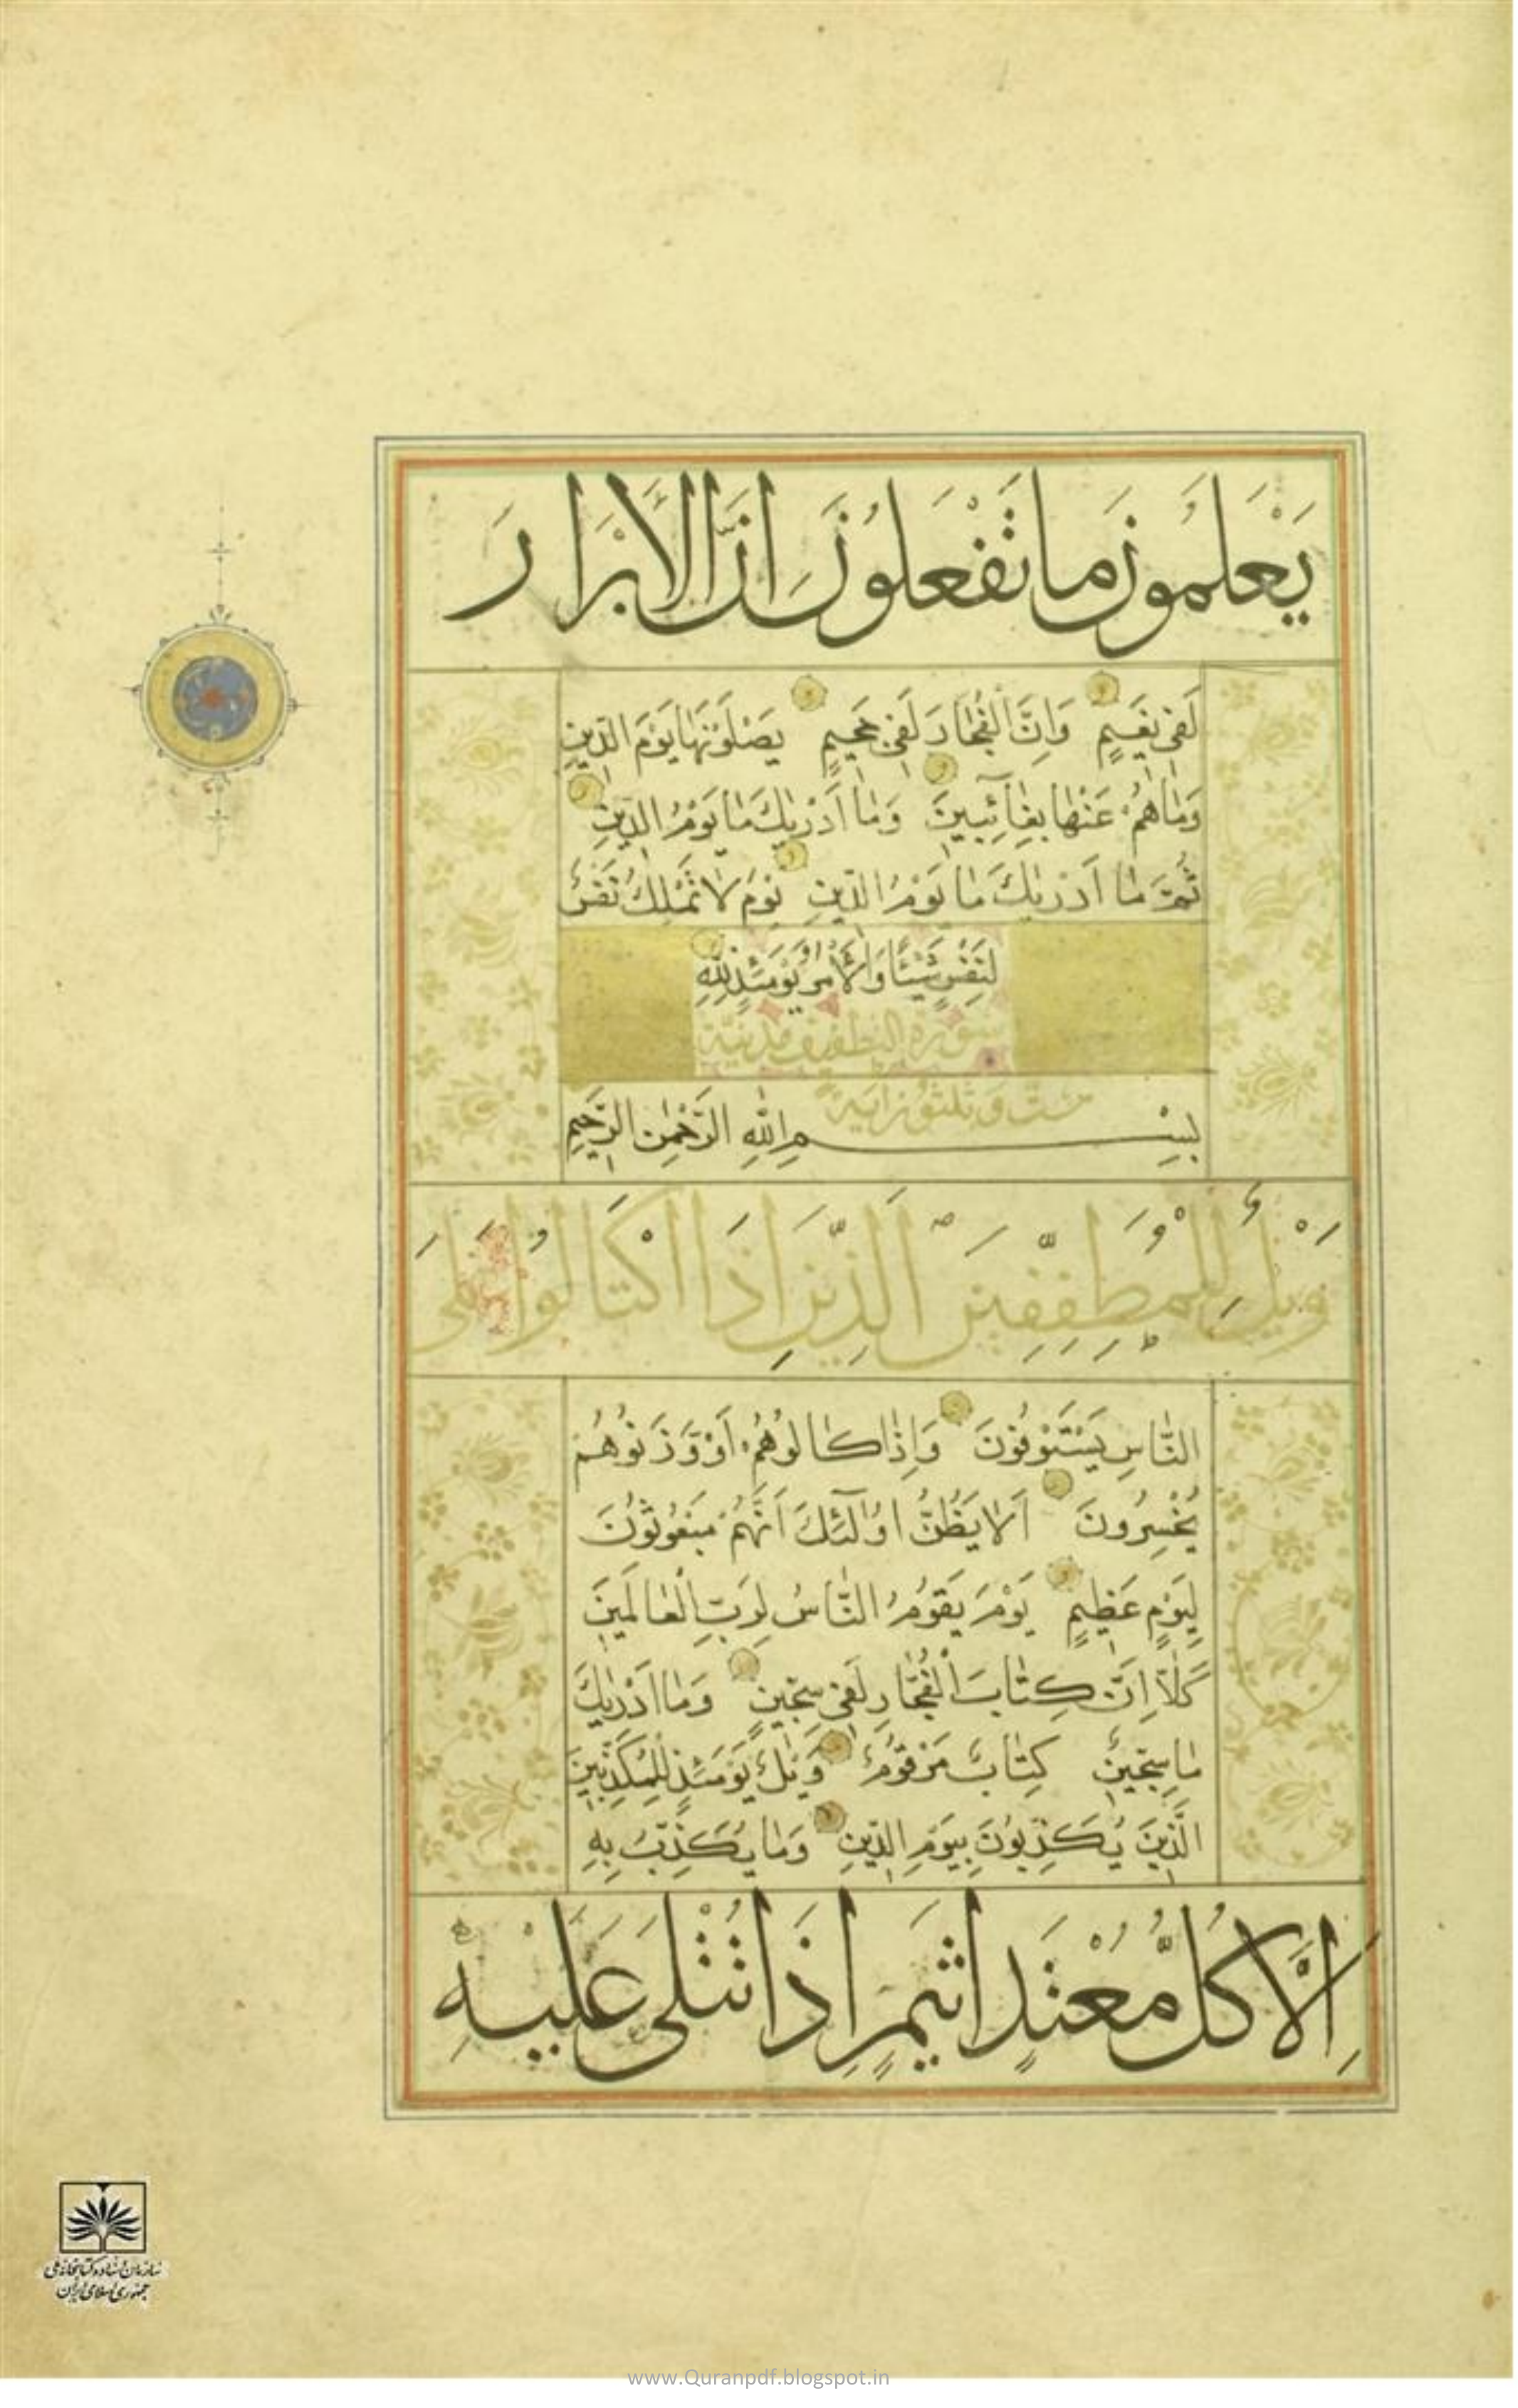 يَعْلَمُونَ مَا تَفْعَلُونَ اِنَّ الْاَبْرَارَ
لَفٖي نَعٖيمٍ وَاِنَّ الْفُجّٰارَ لَفٖي جَحٖيمٍ يَصْلَوْنَهٰا يَوْمَ الدّٖينِ
وَمٰاهُمْ عَنْهٰا بِغٰٓائِبٖينَ وَمٰٓا اَدْرٰيكَ مٰا يَوْمُ الدّٖينِ
ثُمَّ مٰٓا اَدْرٰيكَ مٰا يَوْمُ الدّٖينِ يَوْمَ لٰا تَمْلِكُ نَفْسٌ
لِنَفْسٍ شَيْئًا وَالْاَمْرُ يَوْمَئِذٍ لِلّٰهِ
سورة التطفيف مدنية
ست وثلثون اية
بِسْمِ اللّٰهِ الرَّحْمٰنِ الرَّحٖيمِ
وَيْلٌ لِلْمُطَفِّفِينَ اَلَّذِينَ اِذَا اكْتَالُوا عَلَى
النّٰاسِ يَسْتَوْفُونَ وَاِذٰا كٰالُوهُمْ اَوْ وَزَنُوهُمْ
يُخْسِرُونَ اَلٰا يَظُنُّ اُولٰٓئِكَ اَنَّهُمْ مَبْعُوثُونَ
لِيَوْمٍ عَظٖيمٍ يَوْمَ يَقُومُ النّٰاسُ لِرَبِّ الْعٰالَمٖينَ
كَلّٰٓا اِنَّ كِتٰابَ الْفُجّٰارِ لَفٖي سِجّٖينٍ وَمٰٓا اَدْرٰيكَ
مٰا سِجّٖينٌ كِتٰابٌ مَرْقُومٌ وَيْلٌ يَوْمَئِذٍ لِلْمُكَذِّبٖينَ
الَّذٖينَ يُكَذِّبُونَ بِيَوْمِ الدّٖينِ وَمٰا يُكَذِّبُ بِهِ
اِلَّا كُلُّ مُعْتَدٍ اَثِيمٍ اِذَا تُتْلَى عَلَيْهِ
سازمان اسناد و کتابخانه ملی
جمهوری اسلامی ایران
www.Quranpdf.blogspot.in